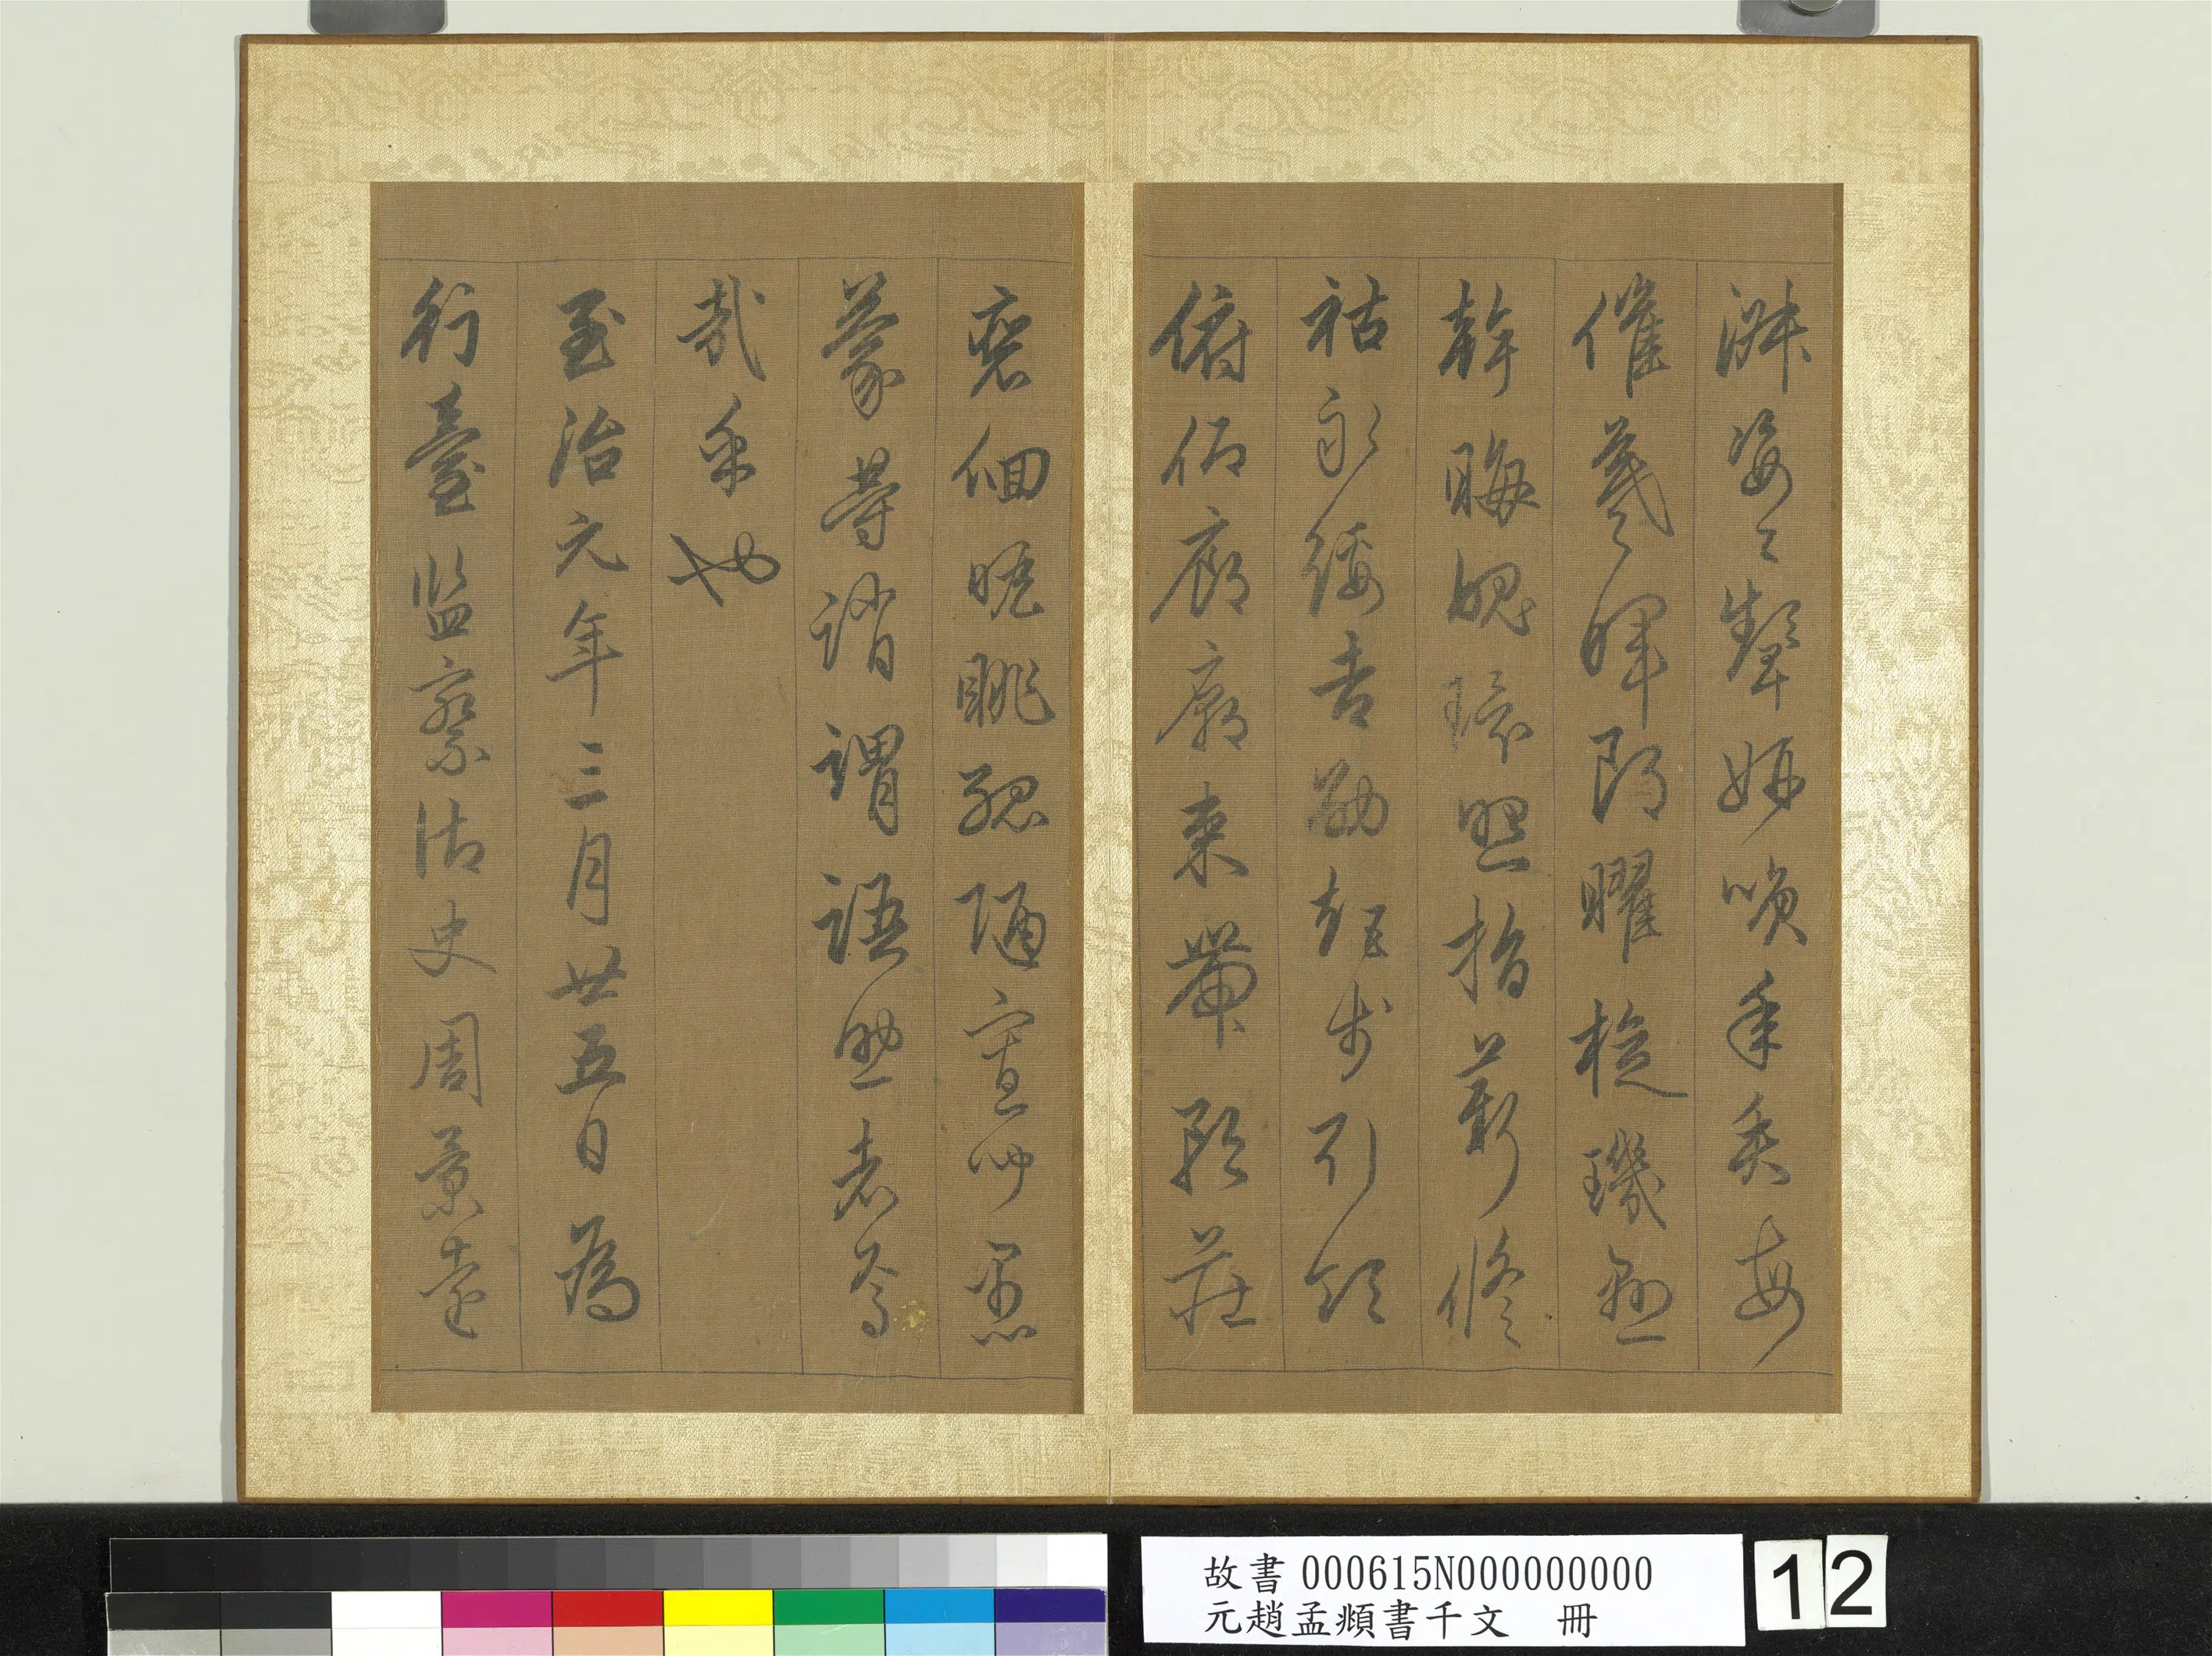 淑姿工顰妍咲年矢每
催羲暉朗曜璇璣懸
斡晦魄環照指薪修
祜永綏吉劭矩步引領
俯仰廊廟束帶矜莊
裵佪瞻眺孤陋寡聞愚
蒙等誚謂語助者焉
哉乎也
至治元年三月廿五日為
行臺監察御史周景遠
故書 000615N000000000
元趙孟頫書千文 冊
12